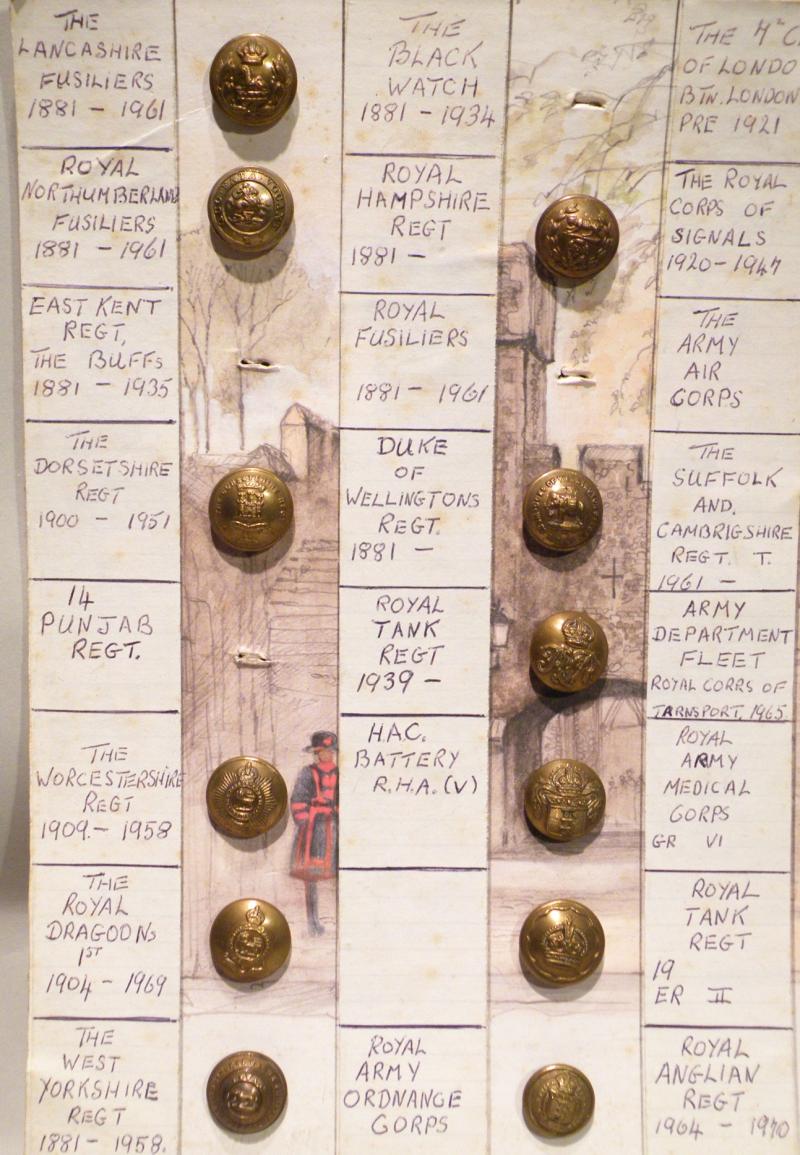 THE
LANCASHIRE
FUSILIERS
1881 - 1961
ROYAL
NORTHUMBERLAND
FUSILIERS
1881 - 1961
EAST KENT
REGT,
THE BUFFS
1881 - 1935
THE
DORSETSHIRE
REGT
1900 - 1951
14
PUNJAB
REGT.
THE
WORCESTERSHIRE
REGT
1909. - 1958
THE
ROYAL
DRAGOONS
1ST
1904 - 1969
THE
WEST
YORKSHIRE
REGT
1881 - 1958.
THE
BLACK
WATCH
1881 - 1934
ROYAL
HAMPSHIRE
REGT
1881 -
ROYAL
FUSILIERS
1881 - 1961
DUKE
OF
WELLINGTONS
REGT.
1881 -
ROYAL
TANK
REGT
1939 -
H.A.C.
BATTERY
R.H.A. (V)
ROYAL
ARMY
ORDNANCE
CORPS
THE 4TH C
OF LONDO
BTN. LONDON
PRE 1921
THE ROYAL
CORPS OF
SIGNALS
1920 - 1947
THE
ARMY
AIR
CORPS
THE
SUFFOLK
AND.
CAMBRIGSHIRE
REGT. T.
1961 -
ARMY
DEPARTMENT
FLEET
ROYAL CORRS OF
TARNSPORT, 1965
ROYAL
ARMY
MEDICAL
CORPS
GR VI
ROYAL
TANK
REGT
19
ER II
ROYAL
ANGLIAN
REGT
1964 - 1970